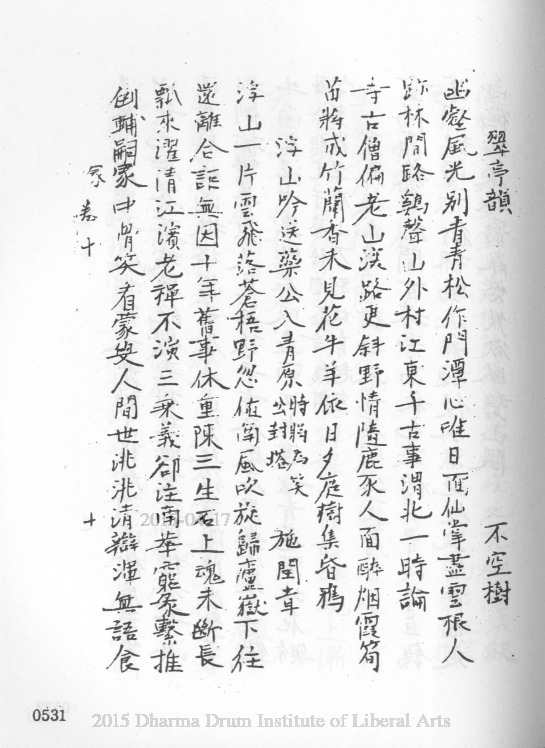 翠亭韻　　不空樹
幽壑風光別青青松作門潭心唯日面仙掌蓋雲根人
跡林間路鷄聲山外村江東千古事渭北一時論
寺古僧偏老山深路更斜野情隨鹿豕人面醉烟霞筍
苗將成竹蘭香未見花牛羊依日夕庭樹集昏鴉
浮山吟送藥公入青原 時將為笑公封塔 施閏章
浮山一片雲飛落蒼梧野忽值箇風吹旋歸廬嶽下往
還離合詎無因十年舊事休重陳三生石上魂未斷長
瓢來濯清江濱老禪不演三乘義卻注南華窮彖繫推
倒輔嗣冢中骨笑看蒙叟人間世洮洮清辯渾無語食
冬 卷十　十
2015-04-17
0531
2015 Dharma Drum Institute of Liberal Arts